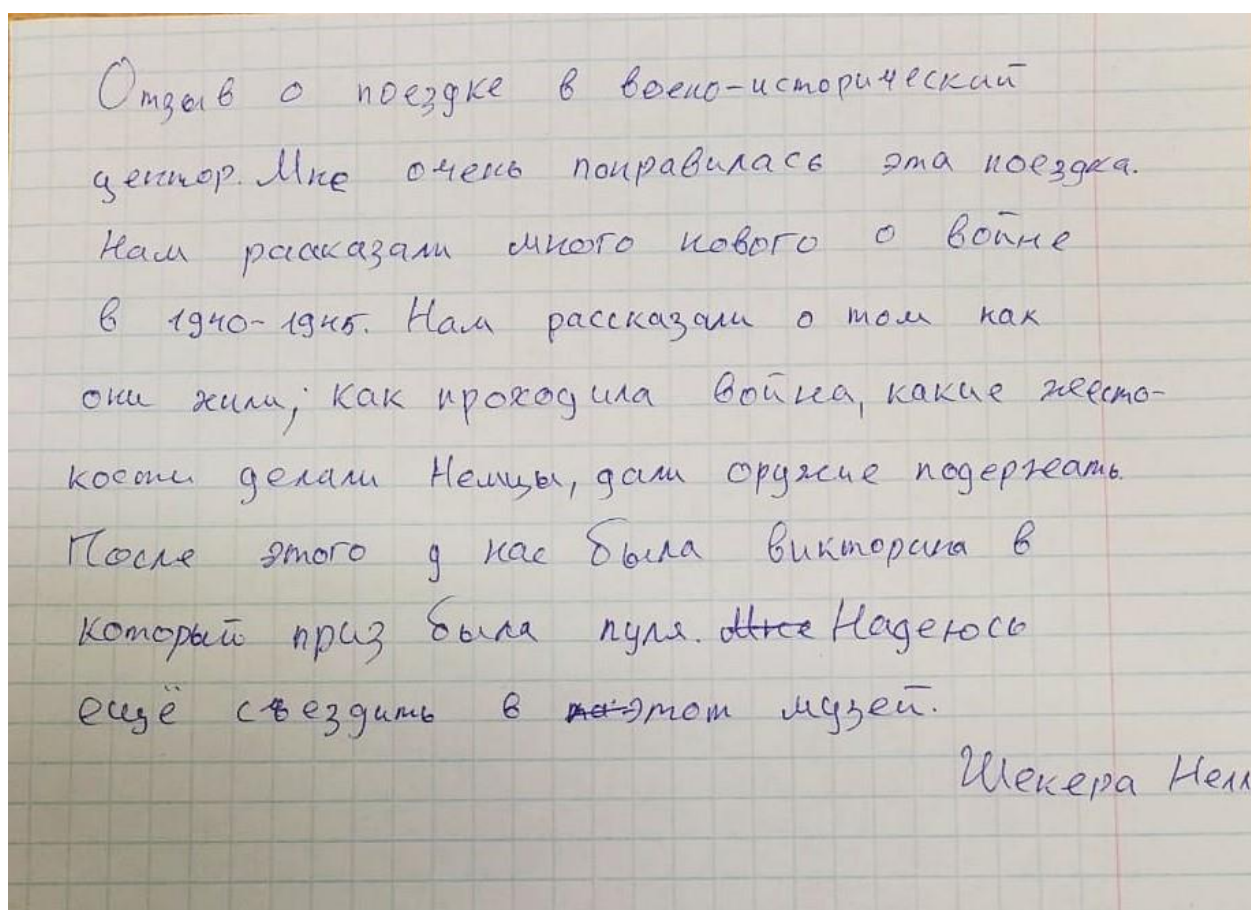 Отзыв о поездке в воено-исторический
центор. Мне очень понравилась эта поездка.
Нам рассказали много нового о войне
в 1940-1945. Нам рассказали о том как
они жили, как проходила война, какие жесто-
кости делали Немцы, дали оружие подержать.
После этого у нас была викторина в
который приз была пуля. Мне Надеюсь
ещё съездить в этот музей.
Шекера Нелл